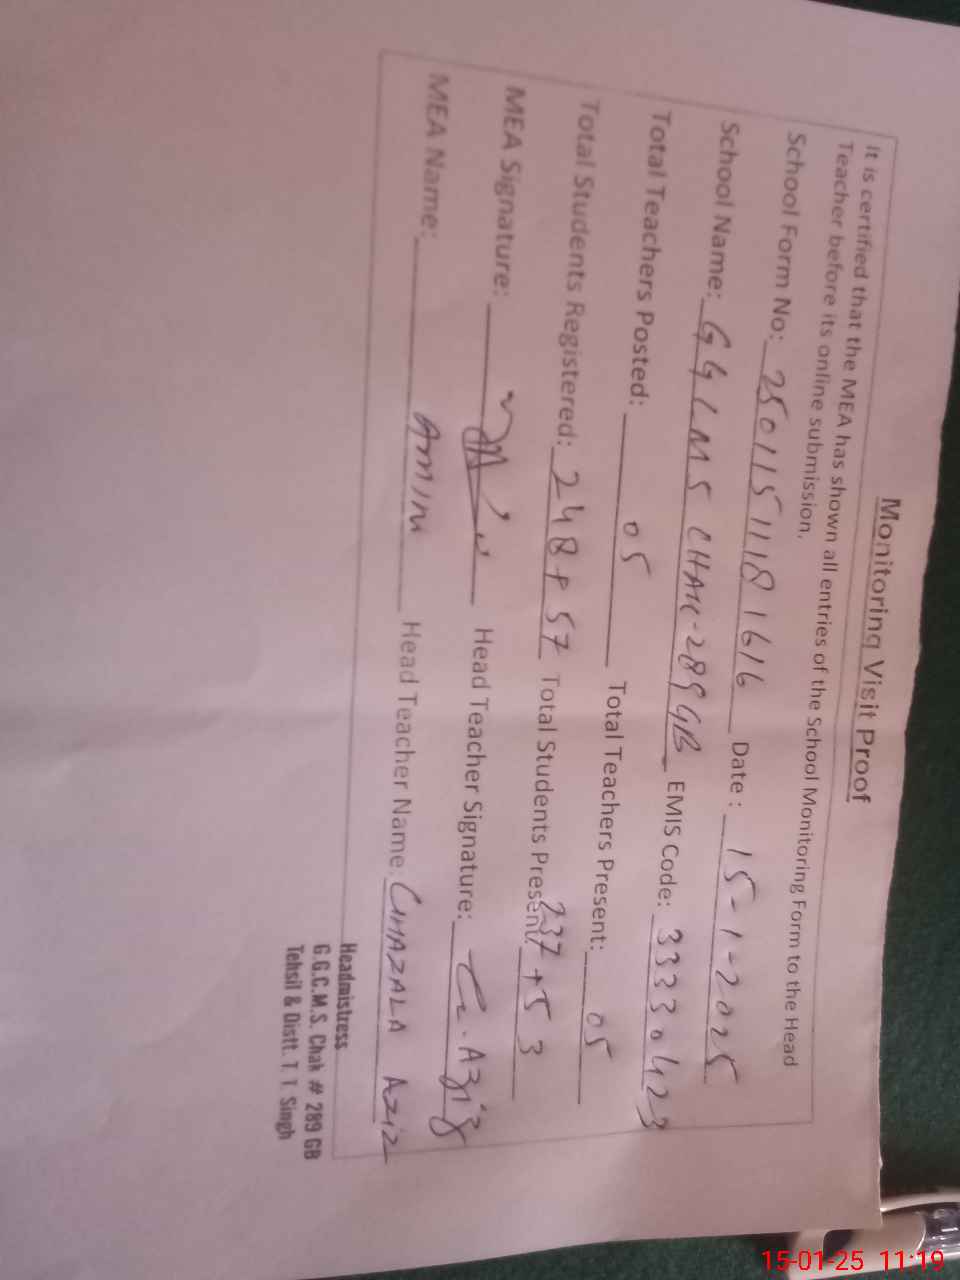 Monitoring Visit Proof
It is certified that the MEA has shown all entries of the School Monitoring Form to the Head
Teacher before its online submission.
School Form No: 2501151118 1616 Date : 15-1-2025
School Name: GGLMS CHAK-289GB EMIS Code: 33330423
Total Teachers Posted: 05 Total Teachers Present: 05
Total Students Registered: 248+57 Total Students Present: 237+53
MEA Signature: Head Teacher Signature: G. Aziz
MEA Name: AMIN Head Teacher Name: GHAZALA AZIZ
Headmistress
G.G.C.M.S. Chak # 289 GB
Tehsil & Distt. T. T. Singh
15-01-25 11:19